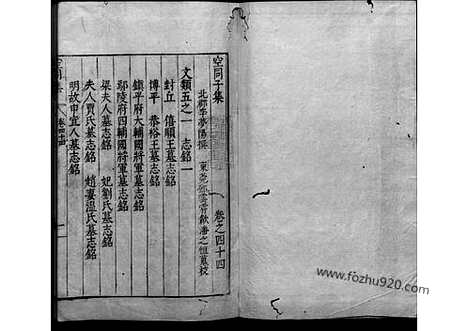 空同子集 卷之四十四
北郡李夢陽撰 東莞鄧雲霄 潘之恒蒐校
文類五之一 志銘一
封丘僖順王墓志銘
博平恭裕王墓志銘
鎮平府大輔國將軍墓志銘
鄢陵府四輔國將軍墓志銘
梁夫人墓志銘 妃劉氏墓志銘
夫人賈氏墓志銘 趙妻溫氏墓志銘
明故申宜人墓志銘
空同集 卷四十四 一
www.fozhu920.com